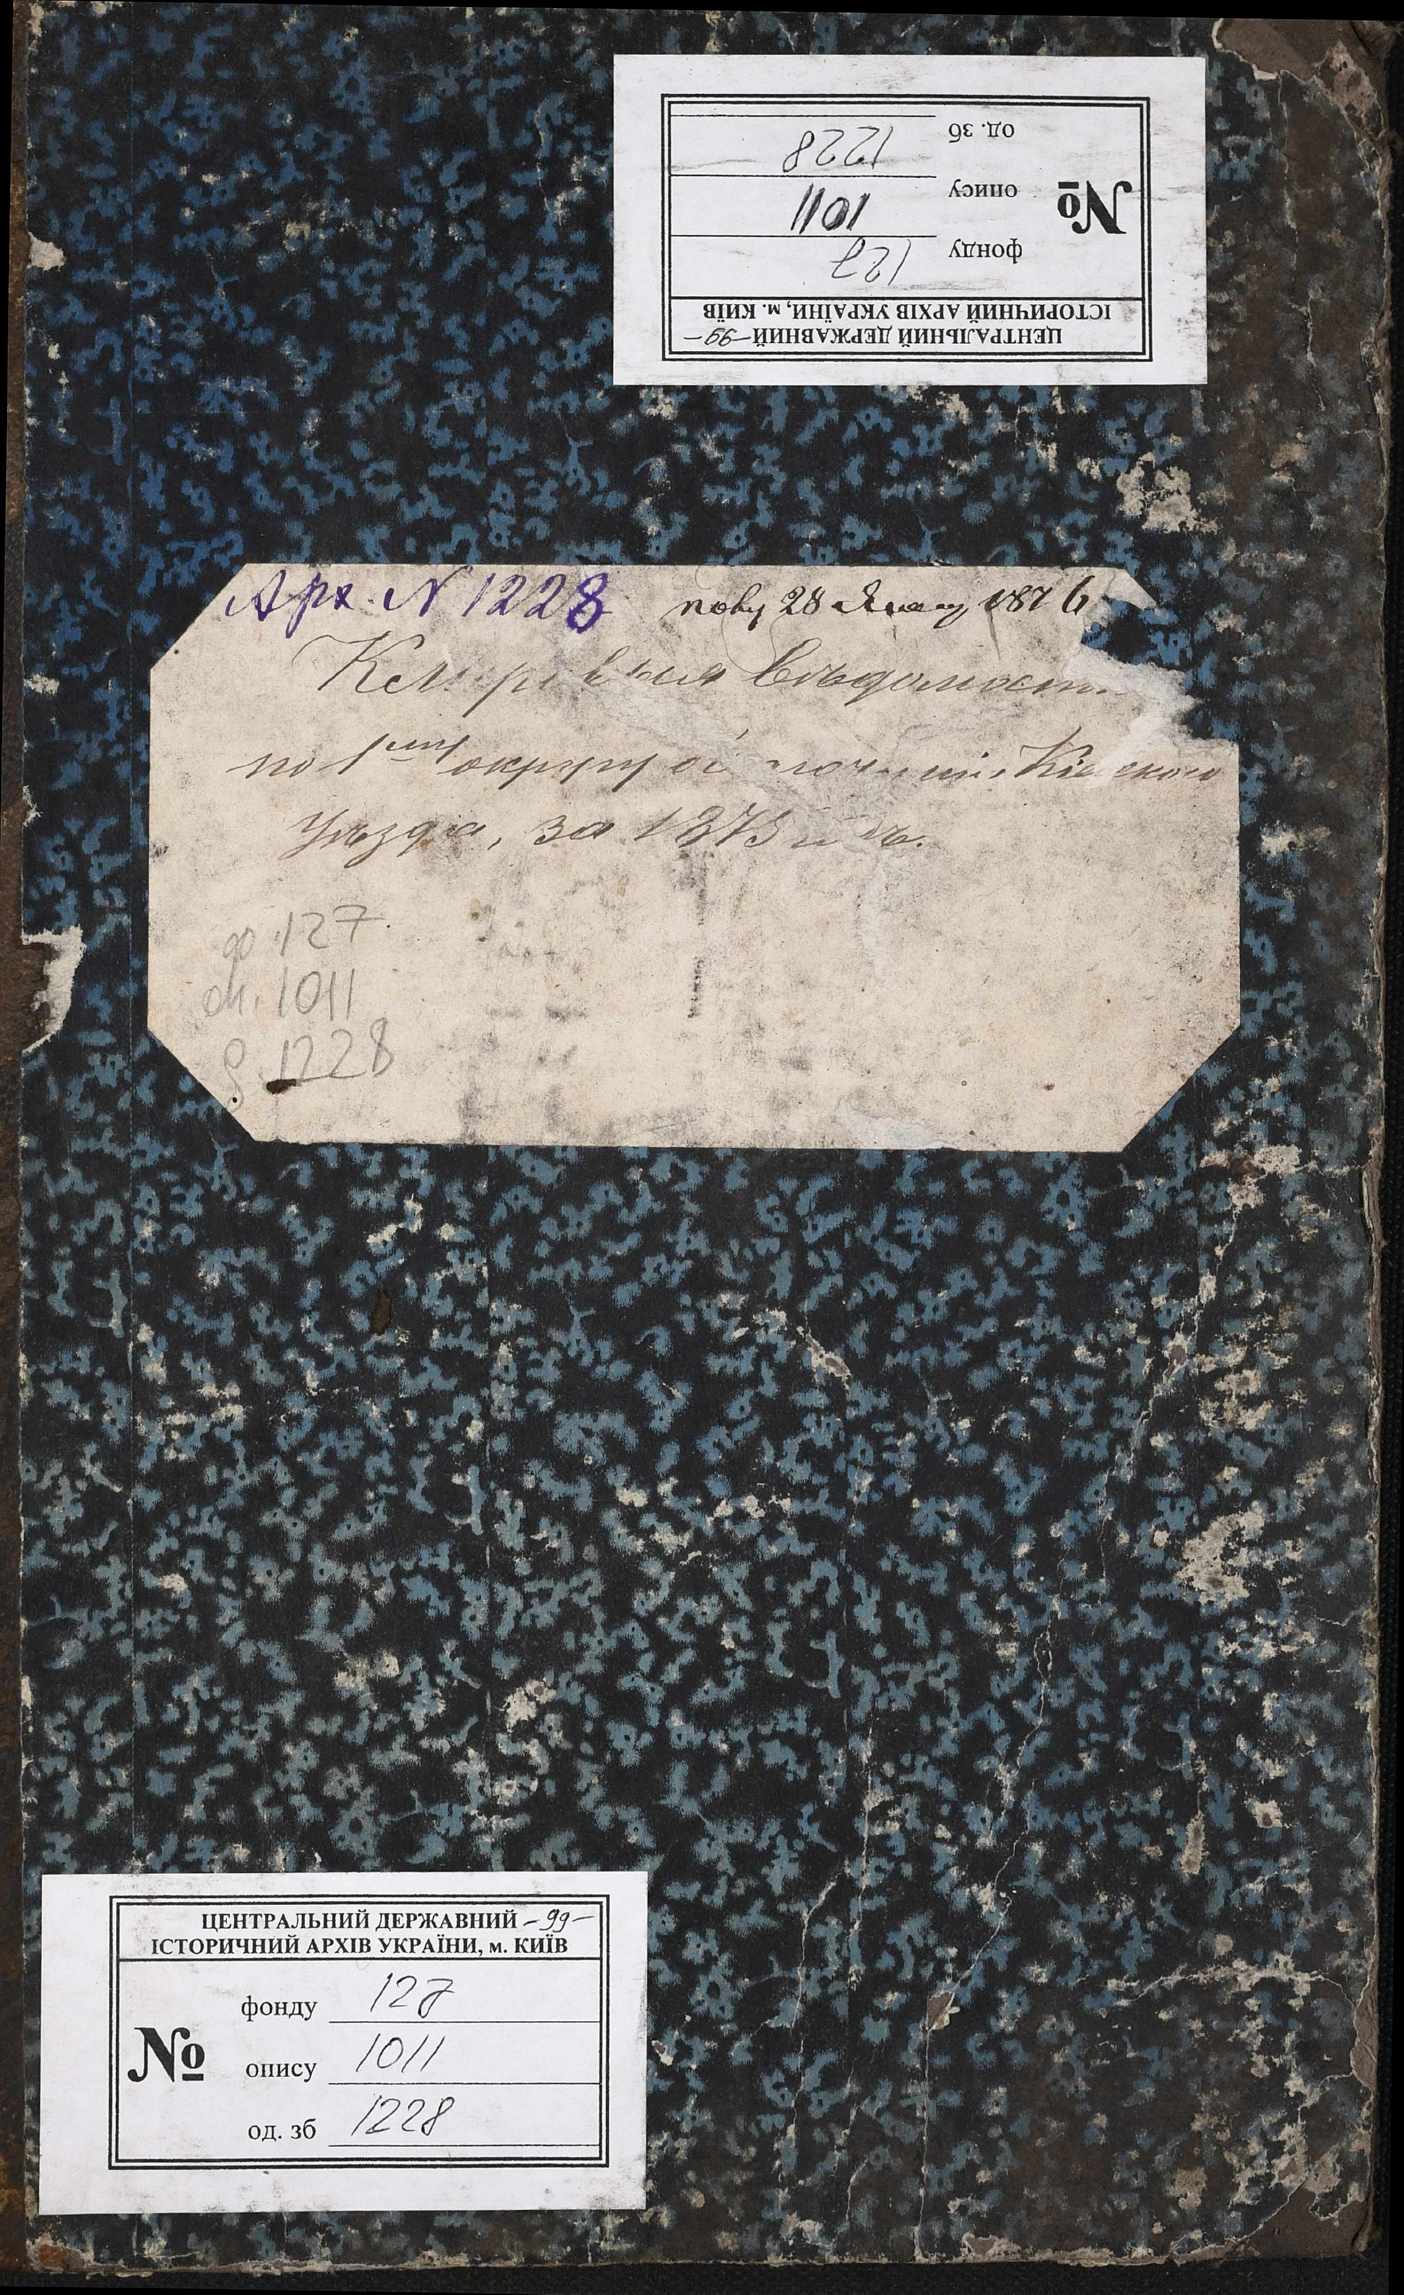 од. зб 1228
опису 1011
фонду 127
№
ЦЕНТРАЛЬНИЙ ДЕРЖАВНИЙ -99-
ІСТОРИЧНИЙ АРХІВ УКРАЇНИ, м. КИЇВ
Арх. N 1228 28 1876
вѣдомости
по 1му округу Кіевскаго
Уѣзда, за 1875
ф. 127
оп. 1011
д. 1228
ЦЕНТРАЛЬНИЙ ДЕРЖАВНИЙ -99-
ІСТОРИЧНИЙ АРХІВ УКРАЇНИ, м. КИЇВ
№
фонду 127
опису 1011
од. зб 1228